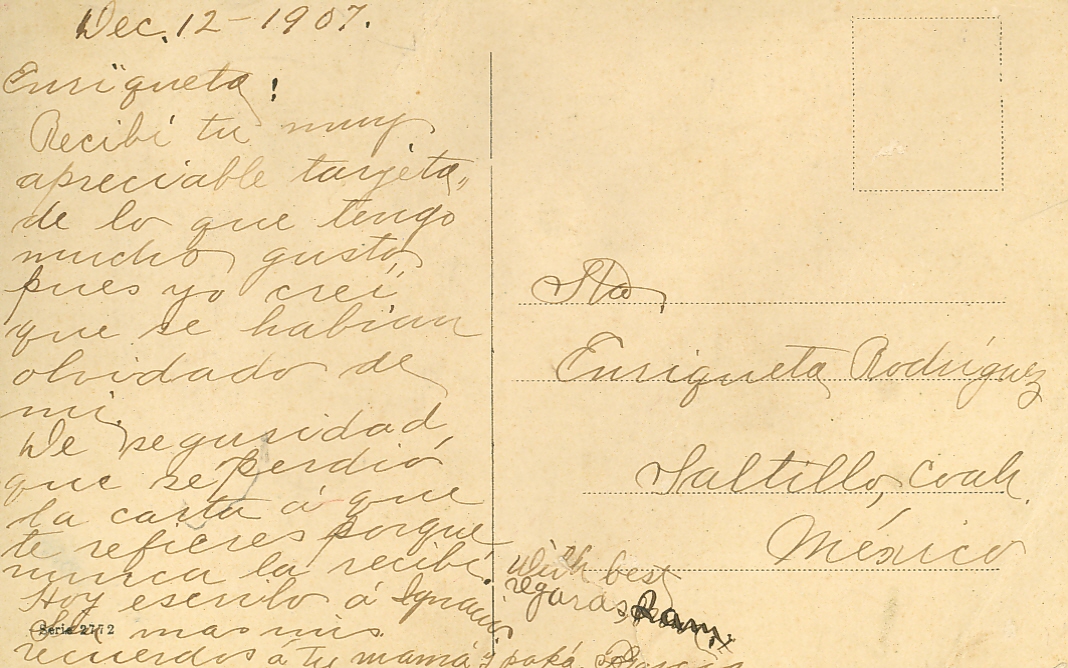 Dec. 12 - 1907.
Enriqueta!
Recibí tu muy
apreciable tarjeta,
de lo que tengo
mucho gusto,
pues yo creí,
que se habían
olvidado de
mi.
De seguridad,
que se perdió
la carta á que
te refieres porque
nunca la recibí.
Hoy escribo á Ignacio.
Sin mas mis
recuerdos á tu mamá y papá.
Serie 2772
Sta.
Enriqueta Rodríguez
Saltillo, Coah.
México
With best
regards, Ram.